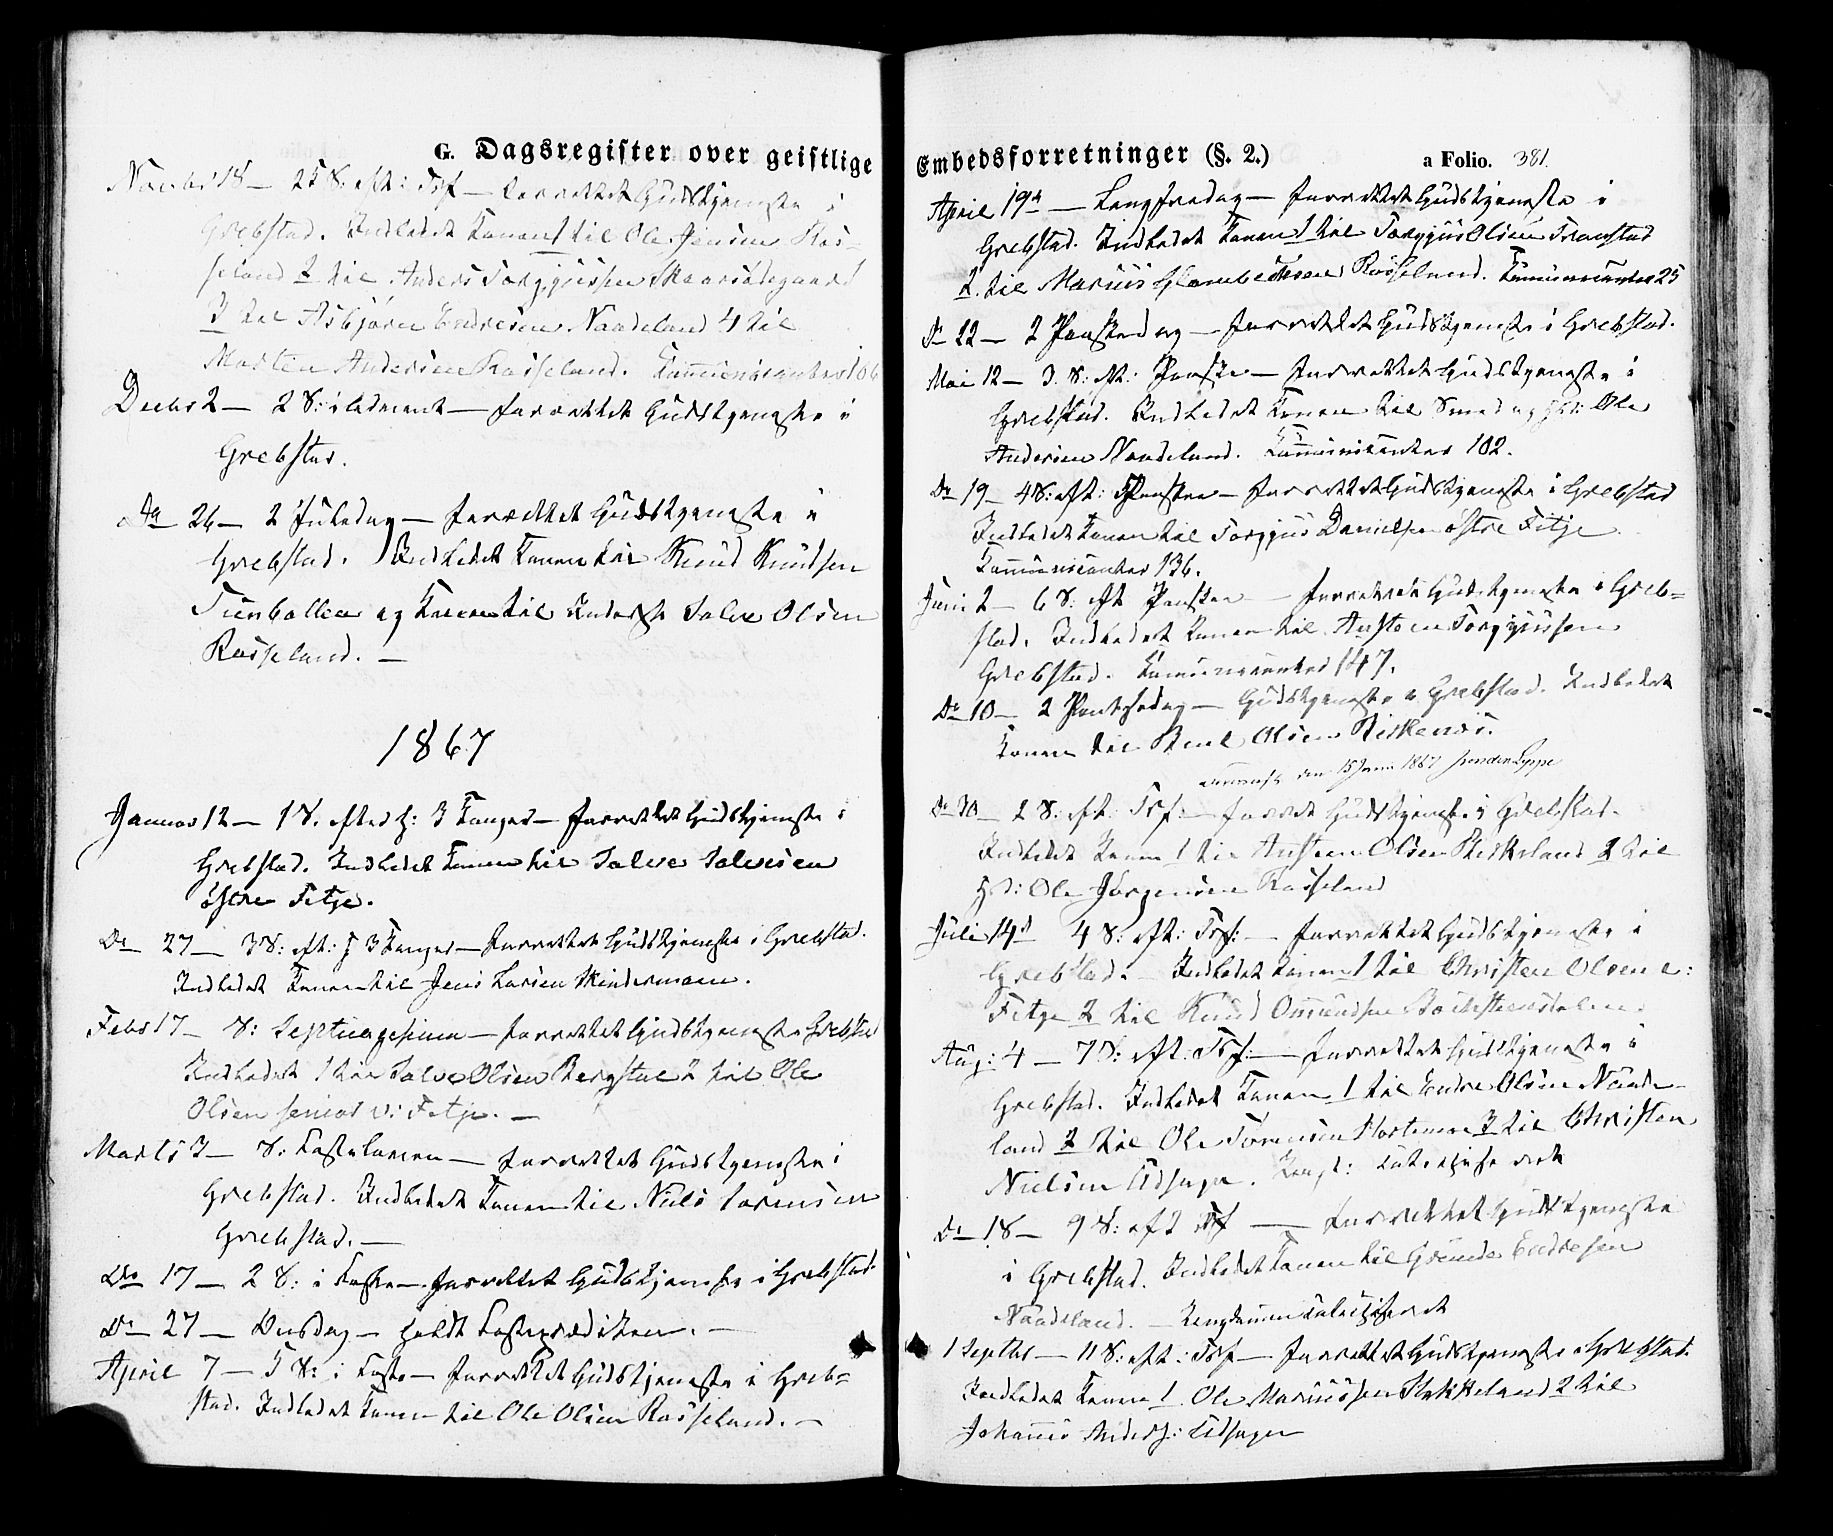 G. Dagsregister over geistlige
Novbr 18 – 25 S: eft: Trf – forrettet Gudstjeneste i
Grebstad. Indledet Konen 1 til Ole Jensen Ros-
seland 2 til Anders Torgjussen Skaarsødegaard
3 til Asbjørn Endresen Naadeland 4 til
Morten Andersen Rosseland. Communicanter 106
Decbr 2 – 2 S: i Advent – forrettet Gudstjeneste i
Grebstad.
Do 26 – 2 Juledag – forrettet Gudstjeneste i
Grebstad. Indledet Konen til Knud Knudsen
og Konen til Inderste Salve Olsen
Rosseland. –
1867
Januar 12 – 1 S. efter H: 3 Konger – forrettet Gudstjeneste i
Grebstad. Indledet Konen til Salve Salvesen
østre Fitje.
Do 27 – 3 S: eft: H 3 Konger – forrettet Gudstjeneste i Grebstad.
Indledet Konen til Jens Larsen
Febr 17 – S: Septuagesima – forrettet Gudstjeneste i Grebstad
Indledet 1 til Salve Olsen Bergstøl 2 til Ole
Olsen senior v: Fitje. –
Marts 3 – S: Fastelavn – forrettet Gudstjeneste i
Grebstad. Indledet Konen til Niels Sørensen
Grebstad. –
Do 17 – 2 S: i Faste – forrettet Gudstjeneste i Grebstad.
Do 27 – Onsdag – holdt Fasteprædiken. –
April 7 – 5 S: i Faste – forrettet Gudstjeneste i Greb-
stad. Indledet Konen til Ole Olsen Rosseland. –
Embedsforretninger (§. 2.) a Folio. 381.
April 19de – Langfredag – forrettet Gudstjeneste i
Grebstad. Indledet Konen 1 til Torgjus Olsen Tronstad
2. til Marius Rosseland. Communicanter 25
Do 22 – 2 Paaskedag – forrettet Gudstjeneste i Grebstad.
Mai 12 – 3. S: eft: Paaske – forrettet Gudstjeneste i
Grebstad. Indledet Konen til Ole
Andersen Naadeland. Communicanter 102.
Do 19 – 4 S: eft: Paaske – forrettet Gudstjeneste i Grebstad
Indledet Konen til Torgjus Danielsen østre Fitje
Communicanter 136.
Juni 2 – 6 S: eft Paaske – forrettet Gudstjeneste i Greb-
stad. Indledet Konen til Austen Torgjussen
Grebstad. Communicanter 147.
Do 10 – 2 Pentsedag – Gudstjeneste i Grebstad. Indledet
Konen til Olsen
den 15 Juni 1867
Do 30 – 2 S: eft: Trf. – forrettet Gudstjeneste i Grebstad.
Indledet Konen 1 til Austen Olsen Birkeland 2 til
Ole Jørgensen Rosseland
Juli 14d 4 S: eft: Trf: – forrettet Gudstjeneste i
Grebstad. Indledet Konen 1 til Christen Olsen
Fitje 2 til Knud Omundsen
Aug: 4 – 7 S: eft: Trf: – forrettet Gudstjeneste i
Grebstad. Indledet Konen 1 til Endre Olsen Naade-
land 2 til Ole Sørensen 3 til Christen
Nielsen Udhuge.
Do 18 – 9 S: eft Trf – forrettet Gudstjeneste
i Grebstad. Indledet Konen til Gunde Endresen
Naadeland. – Ungdommen catechiseret
1 Septbr – 11 S: eft: Trf – forrettet Gudstjeneste i Grebstad.
Indledet Konen 1. Ole Mariussen 2 til
Johannes Anders: Udhuge